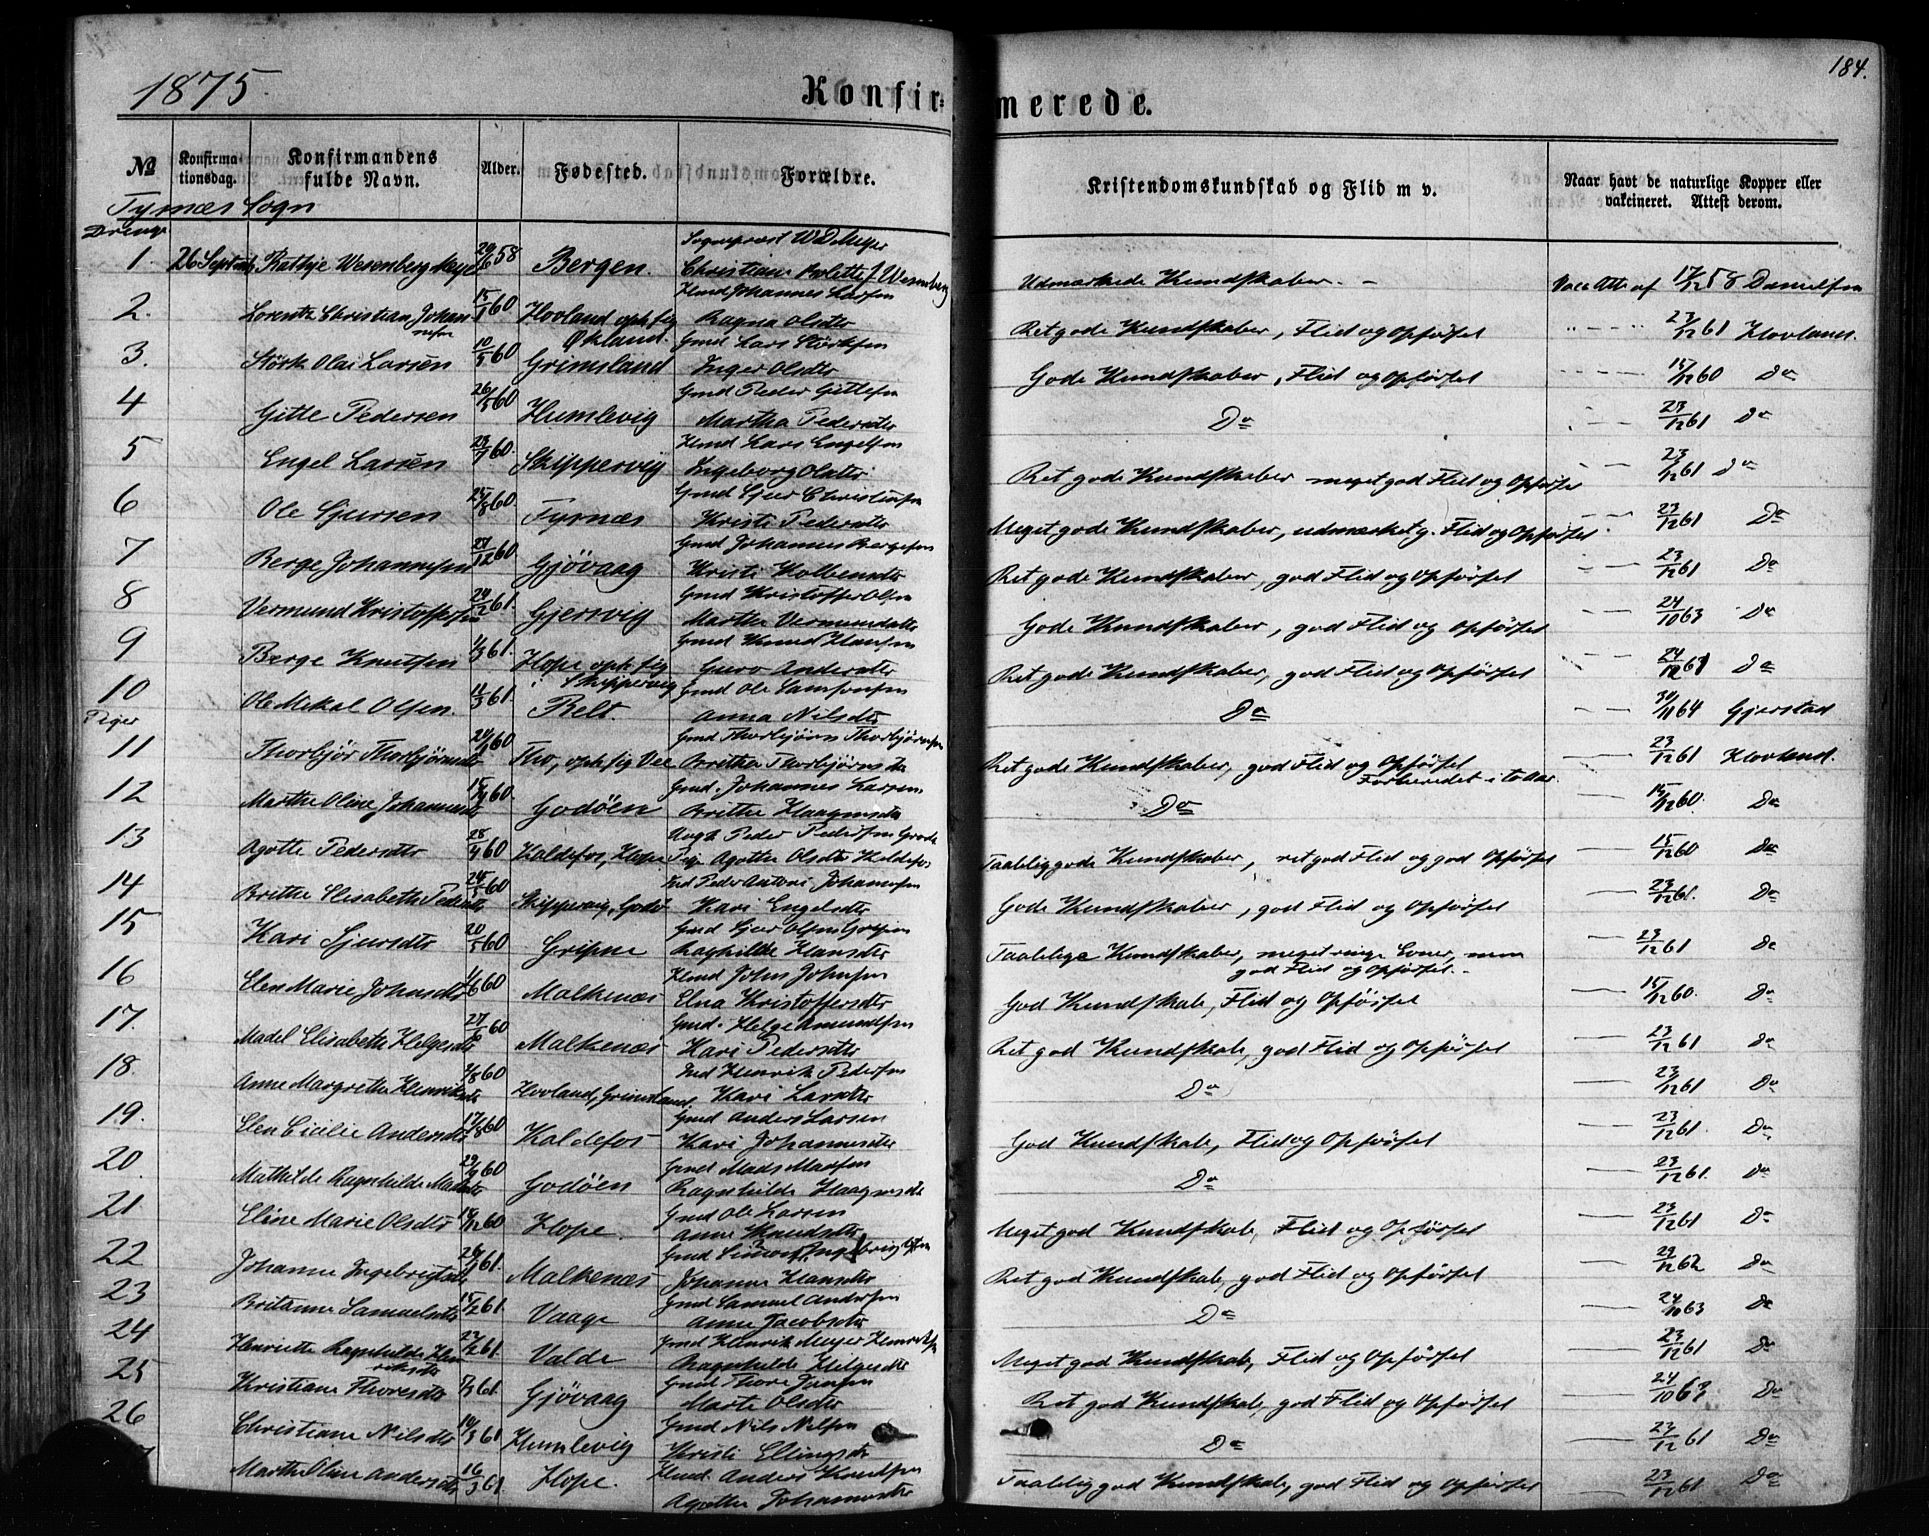 1875.
184.
Konfirmerede.
№ Konfirmationsdag. Konfirmandens fulde Navn. Alder. Fødested. Forældre. Kristendomskundskab og Flid m v. Naar havt de naturlige Kopper eller vakcineret. Attest derom.
Tysnæs Sogn
Drenge
Sogneprest Meyer
1. 26 Septemb Wesenberg Meyer 58 Bergen. Christiane Wesenberg Udmærkede Kundskaber. 17/12 58 Danielsen
Johannes Larsen
2. Lorentz Christian Johannesen 15/1 60 Hovland oph. sig Ragna Olsdtr Ret gode Kundskaber, Flid og Opførsel 23/12 61 Hovland.
Økland. Gmd Lars Størksen
3. Størk Olai Larsen 10/5 60 Grimsland Inger Olsdtr Gode Kundskaber, Flid og Opførsel 15/12 60 Do
Gmd Peder Gittesen
4 Gitte Pedersen 26/5 60 Humlevig Martha Pedersdtr Do 23/12 61 Do
Hmd Lars Engelsen
5 Engel Larsen 23/7 60. Skippervig Ingeborg Olsdtr Ret gode Kundskaber meget god Flid og Opførsel 23/12 61 Do
Gmd Sjur
6 Ole Sjursen 25/8 60. Tysnæs Kristi Pedersdtr Meget gode Kundskaber, udmærket g. Flid og Opførsel. 23/12 61 Do
Gmd Johannes Bergesen
7 Berge Johannessen 27/12 60. Gjövaag Kristi Kolbensdtr Ret gode Kundskaber, god Flid og Opførsel 23/12 61 Do
Gmd Kristoffer Olsen
8 Vermund Kristoffersen 24/2 61. Gjersvig Martha Vermundsdtr Gode Kundskaber, god Flid og Opførsel 24/10 63 Do
Gmd Knud Hansen
9 Berge Knutsen 1/3 61. Hope oph. sig Guro Andersdtr Ret gode Kundskaber, god Flid og Opførsel 24/12 61 Do
i Skippervig Gmd Ole Samsonsen
10 Ole Mikal Olsen. 11/3 61. Belt. Anna Nilsdtr Do 30/11 64 Gjerstad
Piger
Gmd Thorbjörn Thorbjörnsen
11 Thorbjör Thorbjörnsdtr 60 Tho, oph. sig Vee Brithe Thorbjörnsdtr Ret gode Kundskaber, god Flid og Opførsel 23/12 61 Hovland.
Forberedet i to Aar
Gmd. Johannes Larsen
12 Marthe Oline Johannesdtr 15/4 60. Godöen Brithe Haagensdtr Do 15/12 60. Do
Ungk Peder Pedersen
13 Agothe Pedersdtr 28/4 60 Kaldefos, Hope Pige Agothe Olsdtr Kaldefos Taalelig gode Kundskaber, ret god Flid og god Opførsel 15/12 60 Do
Ind Peder Antoni Johannsen
14 Brithe Elisabeth Pedersdtr 24/5 60 Skippervig, Godö Kari Engelsdtr Gode Kundskaber, god Flid og Opførsel 23/12 61. Do
Gmd Sjur Olsen Gripne
15 Kari Sjursdtr 20/5 60 Gripne Ragnhilde Hansdtr Taalelige Kundskaber, meget ringe Evner, men 23/12 61 Do
god Flid og Opførsel.
Hmd John Johnsen
16 Elen Marie Johnsdtr 1/6 60 Malkenæs Elna Kristoffersdtr God Kundskab, Flid og Opførsel 15/12 60. Do
Gmd. Helge Amundsen
17. Madel Elisabeth Helgesdtr 27/6 60 Malkenæs Kari Pedersdtr Ret god Kundskab, god Flid og Opførsel 23/12 61 Do
Ind Henrik Pedersen
18 Anne Margrethe Henriksdtr 2/8 60 Hovland, Grimsland Kari Larsdtr Do 23/12 61 Do
Gmd Anders Larsen
19. Elen Cicilie Andersdtr 17/8 60 Kaldefos Kari Johannesdtr God Kundskab, Flid og Opførsel 23/12 61. Do
Gmd Mads Madsen
20. Mathilde Ragnhilde Madsdtr 29/9 60 Godöen Ragnhilde Haagensdtr Do 23/12 61. Do
Gmd Ole Larsen
21. Eline Marie Olsdtr 14/12 60 Hope. Anne Knudsdtr Meget god Kundskab, Flid og Opførsel 23/12 61 Do
Gmd Simon Ingebrigtsen
22 Johanne Ingebrigtsdtr 61. Malkenæs Johanne Hansdtr Ret god Kundskab, god Flid og Opførsel 29/12 62 Do
Gmd Samuel Andersen
23 Britanne Samuelsdtr 15/2 61. Vaage Anne Jacobsdtr Do 24/10 63 Do
Gmd Henrik Meyer Henriksen
24 Henriette Ragnhilde Henriksdtr 23/2 61. Valde Ragnhilde Helgesdtr Meget god Kundskab, Flid og Opførsel 23/12 61 Do
Gmd Thore Jansen
25 Kristiane Thoresdtr 61. Gjövaag Marte Olsdtr Ret god Kundskab, god Flid og Opførsel 24/10 63 Do
Gmd Nils Nilsen
26 Christiane Nilsdtr 10/3 61 Humlevig Kristi Ellingsdtr Do 23/12 61 Do
Hmd Anders Knudsen
Marthe Oline Andersdtr 16/3 61. Hope. Agothe Johannesdtr Taalelig god Kundskab, god Flid og Opførsel 23/12 61 Do